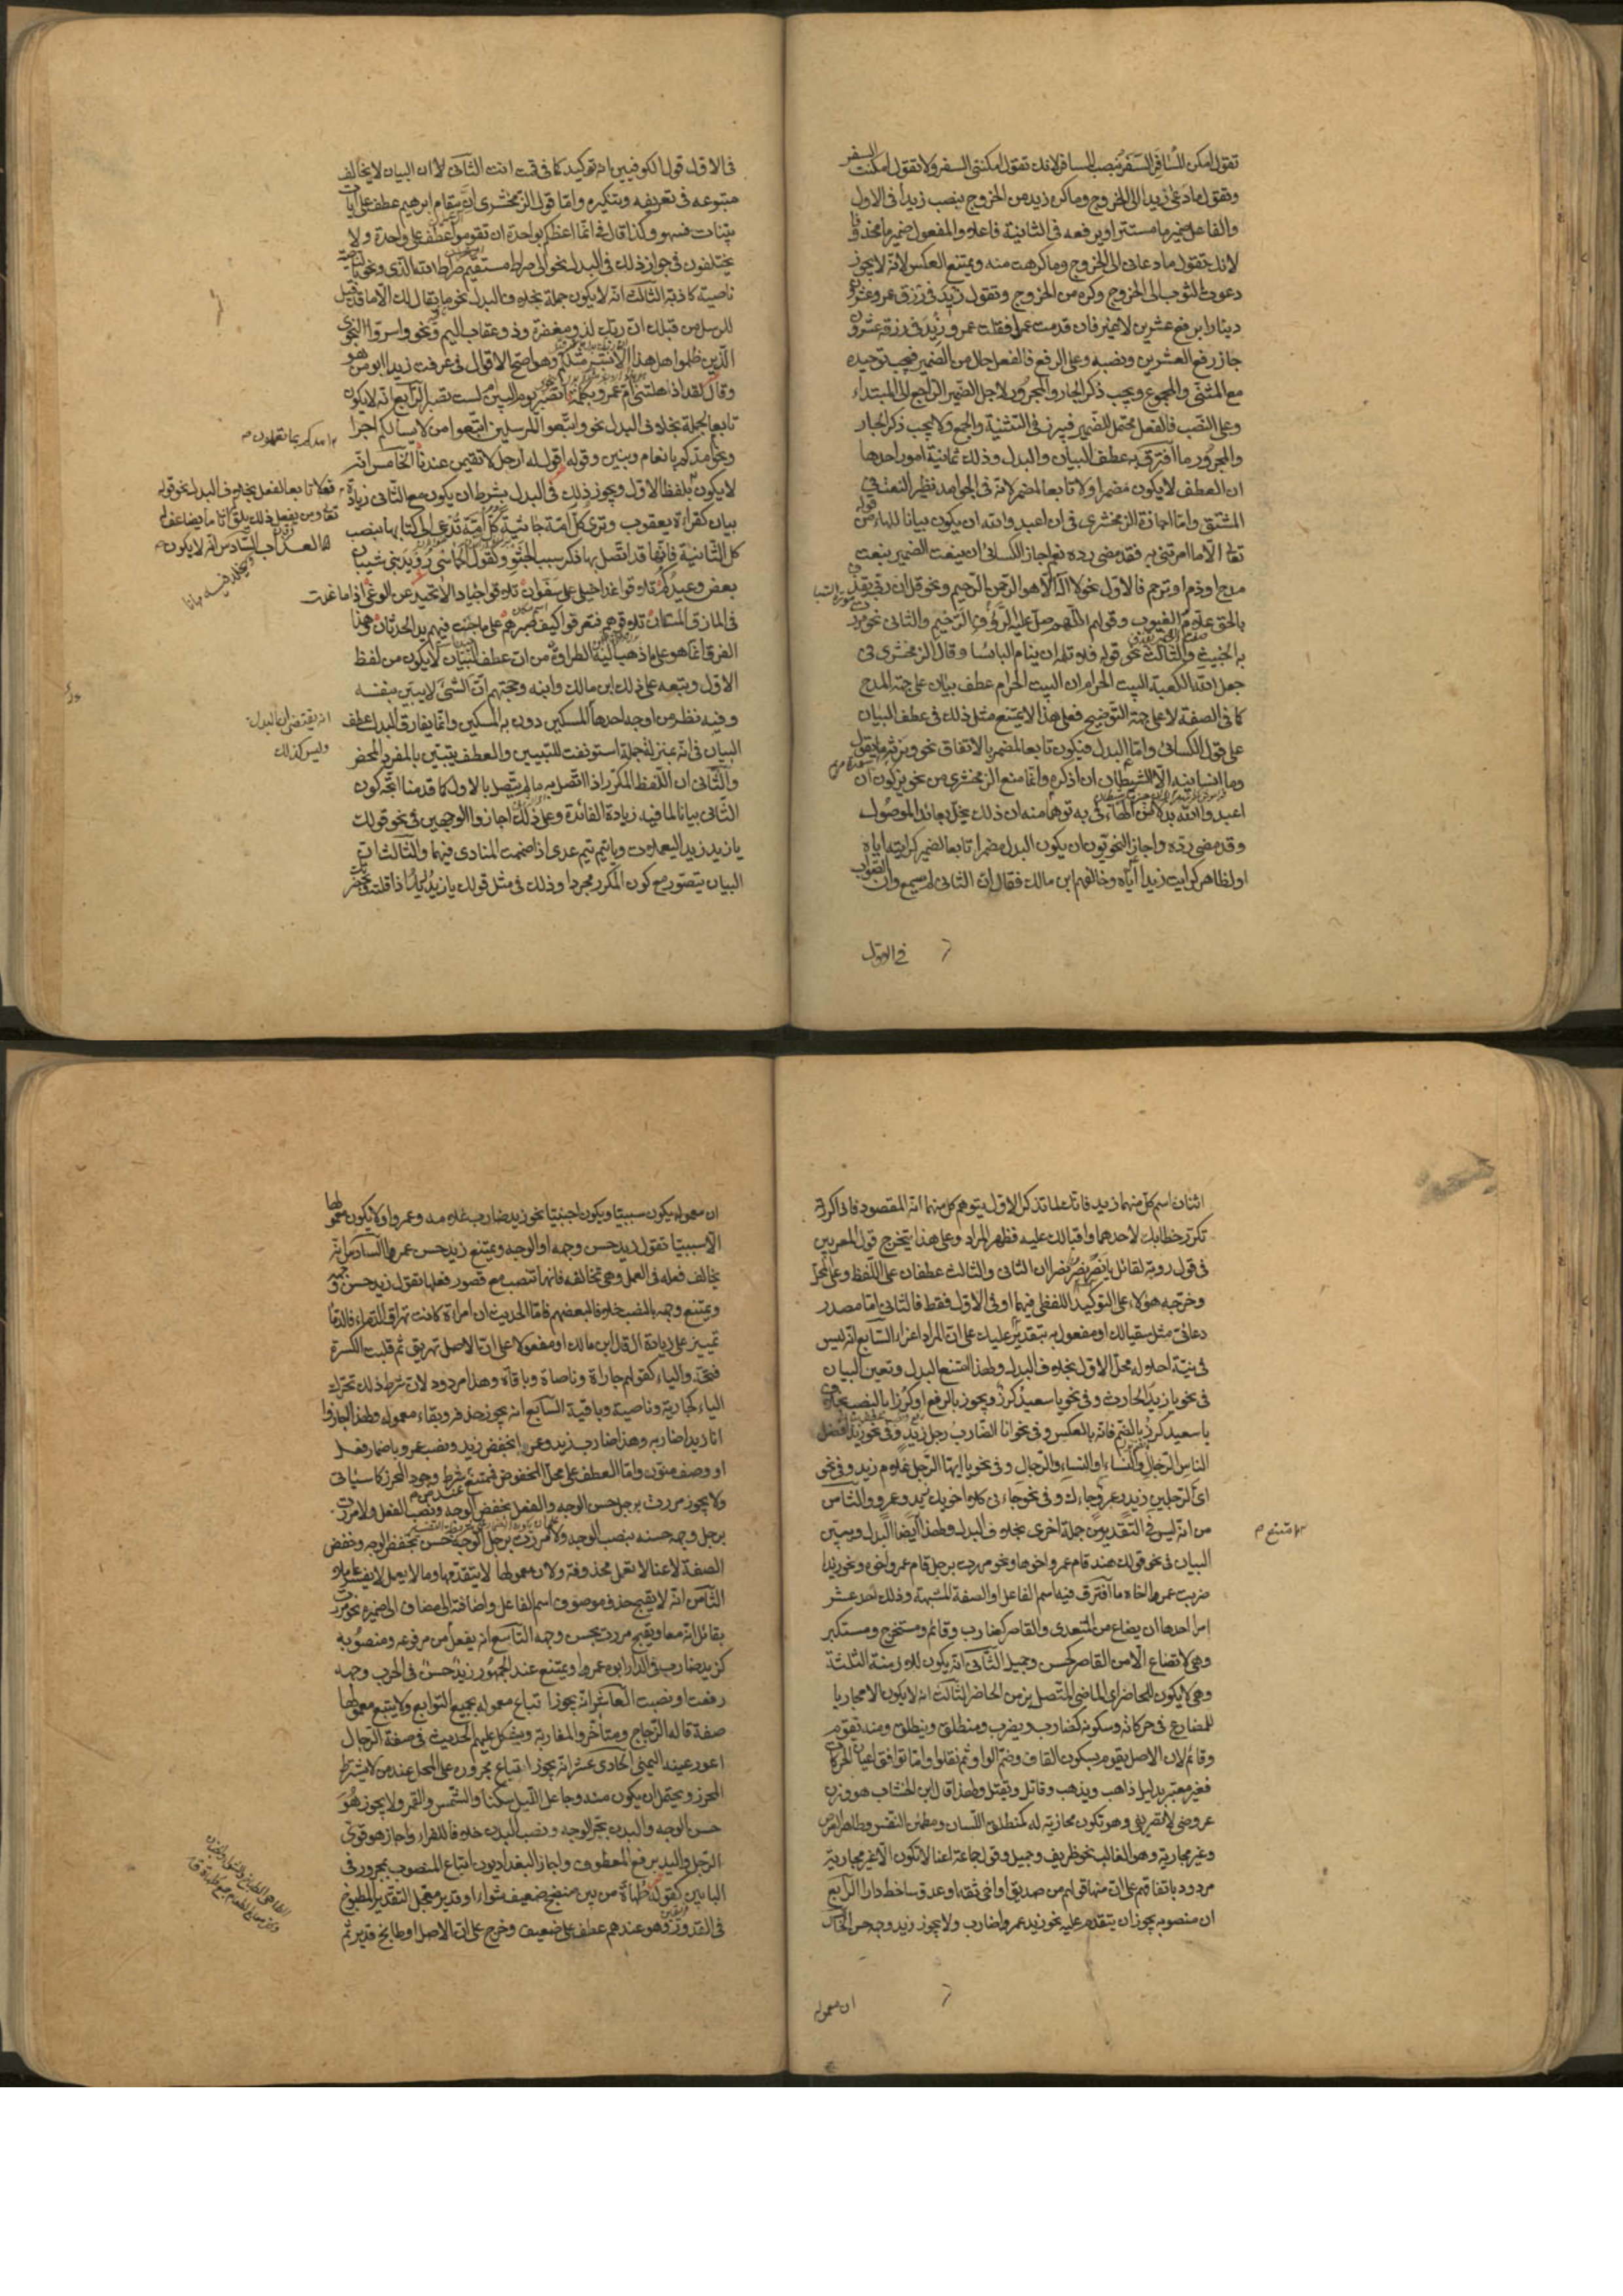 تقول امكن للمسافر السفر بنصب المسافر لانك تقول امكنني السفر ولا تقول امكنت السفر
وتقول ما دعى زيدا الى الخروج وما كره زيد من الخروج بنصب زيدا في الاول
والفاعل ضمير ما مستترا وبرفعه في الثانية فاعلا والمفعول ضمير ما محذوفا
لانك تقول ما دعاني الى الخروج وما كرهت منه ويمتنع العكس لانه لا يجوز
دعوت الثوب الى الخروج وكره من الخروج وتقول زيد في رزق عمرو عشرون
دينارا برفع عشرين لا غير فان قدمت عمرا فقلت عمرو زيد في رزقه عشرون
جاز رفع العشرين ونصبه وعلى الرفع فالفعل خال من الضمير فيجب توحيده
مع المثنى والمجموع ويجب ذكر الجار والمجرور لاجل الضمير الراجع الى المبتداء
وعلى النصب فالفعل محتمل للضمير فيبرز في التثنية والجمع ولا يجب ذكر الجار
والمجرور ما افترق به عطف البيان والبدل وذلك ثمانية امور احدها
ان العطف لا يكون مضمرا ولا تابعا لمضمر لانه في الجوامد نظير النعت في
المشتق واما اجازة الزمخشري في ان اعبدوا الله ان يكون بيانا للهاء من قوله
تعا الا ما امرتني به فقد مضى رده نعم اجاز الكسائي ان ينعت الضمير بنعت
مدح او ذم او ترحم فالاول نحو لا اله الا هو الرحمن الرحيم ونحو قل ان ربي يقذف
بالحق علام الغيوب وقولهم اللهم صل عليه الرؤف الرحيم والثاني نحو مررت
به الخبيث والثالث نحو قوله فلا تلمه ان ينام البائسا وقال الزمخشري في
جعل الله الكعبة البيت الحرام ان البيت الحرام عطف بيان على جهة المدح
كما في الصفة لا على جهة التوضيح فعلى هذا لا يمتنع مثل ذلك في عطف البيان
على قول الكسائي واما البدل فيكون تابعا للمضمر بالاتفاق نحو ونرثه ما يقول
وما انسانيه الا الشيطان ان اذكره وانما منع الزمخشري من نحو يزكون ان
اعبدوا الله بدلا من الهاء في به توهما منه ان ذلك يخل بعائد الموصول
وقد مضى رده واجاز النحويون ان يكون البدل مضمرا تابعا لضمير كرايته اياه
او لظاهر كرايت زيدا اياه وخالفهم ابن مالك فقال ان الثاني لم يسمع وان الصواب
في الاول
في الاول قول الكوفيين انه توكيد كما في قمت انت الثاني ان البيان لا يخالف
متبوعه في تعريفه وتنكيره واما قول الزمخشري ان مقام ابرهيم عطف على ايات
بينات فسهو وكذا قال في انما اعظكم بواحدة ان تقوموا عطف على واحدة ولا
يختلفون في جواز ذلك في البدل نحو الى صراط مستقيم صراط الله الذي ونحو بالناصية
ناصية كاذبة الثالث انه لا يكون جملة بخلاف البدل نحو ما يقال لك الا ما قد قيل
للرسل من قبلك ان ربك لذو مغفرة وذو عقاب اليم ونحو واسروا النجوى
الذين ظلموا هل هذا الا بشر مثلكم وهو اصح الاقوال في عرفت زيدا ابو من هو
وقال لقد اذهلتني ام عمرو بكلمة اتصبر يوم البين ام لست تصبر الرابع انه لا يكون
تابعا لجملة بخلاف البدل نحو اتبعوا المرسلين اتبعوا من لا يسالكم اجرا
ونحو امدكم بانعام وبنين وقوله اقول له ارحل لا تقيمن عندنا الخامس انه
امدكم بما تعلمون
لا يكون فعلا تابعا لفعل بخلاف البدل نحو قوله
تعا ومن يفعل ذلك يلق اثاما يضاعف له
العذاب السادس انه لا يكون
ويخلد فيه مهانا
بلفظ الاول ويجوز ذلك في البدل بشرط ان يكون مع الثاني زيادة
بيان كقراءة يعقوب وترى كل امة جاثية كل امة تدعى الى كتابها بنصب
كل الثانية فانها قد اتصل بها ذكر سبب الجثو وكقول الحماسي رويد بني شيبان
بعض وعيدكم تلاقوا غدا خيلى على سفوان تلاقوا جيادا لا تحيد عن الوغى اذا ما غدت
في المازق المتدان تلاقوهم فتعرفوا كيف صبرهم على ما جنت فيهم يد الحدثان وهذا
الفرق انما هو على ما ذهب اليه ابن الطراوة من ان عطف البيان لا يكون من لفظ
الاول وتبعه على ذلك ابن مالك وابنه وحجتهم ان الشئ لا يبين بنفسه
وفيه نظر من اوجه احدها انه يقتضي ان البدل
وليس كذلك
ليس مبينا للمبدل
البيان في انه بمنزلة جملة استونفت للتبيين والعطف تبيين بالمفرد المحض
والثاني ان اللفظ المكرر اذا اتصل به ما لم يتصل بالاول كما قدمنا اتجه كون
الثاني بيانا لما فيه زيادة الفائدة وعلى ذلك اجازوا الوجهين في نحو قولك
يا زيد زيد اليعملات ويا تيم تيم عدي اذا ضممت المنادى فيهما والثالث ان
البيان يتصور مع كون المكرر مجردا وذلك في مثل قولك يا زيد زيد اذا قلته وبحضرتك
اثنان اسم كل منهما زيد فانك لما تذكر الاول يتوهم كل منهما انه المقصود فاذا كررته
تكرر خطابك لاحدهما واقبالك عليه فظهر المراد وعلى هذا يتخرج قول المعربين
في قول روبة لقائل يا نصر نصر نصرا ان الثاني والثالث عطفان على اللفظ وعلى المحل
وخرجه هؤلاء على التوكيد اللفظي فيهما او في الاول فقط فالثاني اما مصدر
دعائي مثل سقيا لك او مفعول به بتقدير عليك على ان المراد اغراء السابع انه ليس
في نية احلاله محل الاول بخلاف البدل ولهذا امتنع البدل وتعين البيان
في نحو يا زيد الحارث وفي نحو يا سعيد كرز ويجوز بالرفع او كرزا بالنصب بخلاف
يا سعيد كرز بالضم فانه بالعكس وفي نحو انا الضارب الرجل زيد وفي نحو زيد افضل
الناس الرجال والنساء او النساء والرجال وفي نحو يا ايها الرجل غلام زيد وفي نحو
اي الرجلين زيد وعمرو جاءك وفي نحو جاءني كلا اخويك زيد وعمرو والثامن
من انه ليس في التقدير من جملة اخرى بخلاف البدل ولهذا امتنع ايضا البدل وتعين
البيان في نحو قولك هند قام عمرو اخوها ونحو مررت برجل قام عمرو اخوه ونحو زيدا
ضربت عمرا اخاه ما افترق فيه اسم الفاعل والصفة المشبهة وذلك احد عشر
امرا احدها ان يصاغ من المتعدي والقاصر كضارب وقائم ومستخرج ومستكبر
وهي لا تصاغ الا من القاصر كحسن وجميل الثاني انه يكون للازمنة الثلثة
وهي لا يكون الا للحاضر اي الماضي المتصل بزمن الحاضر الثالث انه لا يكون الا مجاريا
للمضارع في حركاته وسكونه كضارب ويضرب ومنطلق وينطلق ومنه يقوم
وقائم لان الاصل يقوم بسكون القاف وضم الواو ثم نقلوا واما توافق اعيان الحركات
فغير معتبر بدليل ذاهب ويذهب وقاتل ويقتل ولهذا قال ابن الخشاب هو وزن
عروضي لا تصريفي وهي تكون مجارية له كمنطلق اللسان ومطمئن النفس وطاهر العرض
وغير مجارية وهو الغالب نحو ظريف وجميل وقول جماعة انها لا تكون الا غير مجارية
مردود باتفاقهم على ان منها قولهم من صديق او اخي ثقة او عدو شاحط دارا الرابع
ان منصوبه يجوز ان يتقدم عليه نحو زيد عمرا ضارب ولا يجوز زيد وجهه حسن الخامس
ان معموله
ان معموله يكون سببيا ويكون اجنبيا نحو زيد ضارب غلامه وعمرا ولا يكون معمولها
الا سببيا تقول زيد حسن وجهه او الوجه ويمتنع زيد حسن عمرا السادس انه
يخالف فعله في العمل وهي تخالفه فانها تنصب مع قصور فعلها تقول زيد حسن وجهه
ويمتنع وجهه بالنصب خلافا لبعضهم فاما الحديث ان امراة كانت تهراق الدماء فالدماء
تمييز على زيادة ال قال ابن مالك او مفعول على ان الاصل تهريق ثم قلبت الكسرة
فتحة والياء كقولهم جاراة وناصاة وباقاة وهذا مردود لان شرط ذلك تحرك
الياء كجارية وناصية وباقية السابع انه يجوز حذفه وبقاء معموله ولهذا اجازوا
انا زيدا ضاربه وهذا ضارب زيد وعمرا بخفض زيد ونصب عمرو باضمار فعل
او وصف منون واما العطف على محل المخفوض فممتنع عند من شرط وجود المحرز كما سيأتي
ولا يجوز مررت برجل حسن الوجه والفعل بخفض الوجه ونصب الفعل ولا مررت
برجل وجهه حسنه بنصب الوجه ولا مررت برجل الوجه حسن بخفض الوجه وخفض
الصفة لانها لا تعمل محذوفة ولان معمولها لا يتقدمها وما لا يعمل لا يفسر عاملا
الثامن انه لا يقبح حذف موصوف اسم الفاعل واضافته الى مضاف الى ضميره نحو مررت
بقاتل ابيه ويقبح مررت بحسن وجهه التاسع انه يفصل من مرفوعه ومنصوبه
كزيد ضارب في الدار ابوه عمرا ويمتنع عند الجمهور زيد حسن في الحرب وجهه
رفعت او نصبت العاشر انه يجوز اتباع معموله بجميع التوابع ولا يتبع معمولها
صفة قاله الزجاج ومتاخروا المغاربة ويشكل عليهم الحديث في صفة الدجال
اعور عينه اليمنى الحادي عشر انه يجوز اتباع مجروره على المحل عند من لا يشترط
المحرز ويحتمل ان يكون منه وجاعل الليل سكنا والشمس والقمر ولا يجوز هو
حسن الوجه والبدن بجر الوجه ونصب البدن خلافا للفراء واجاز هو قوي
الرجل واليد برفع المعطوف واجاز البغداديون اتباع المنصوب بمجرور في
البابين كقوله فظل طهاة من بين منضج صفيف شواء او قدير معجل القدير المطبوخ
في القدر وهو عندهم عطف على صفيف وخرج على ان الاصل او طابخ قدير ثم